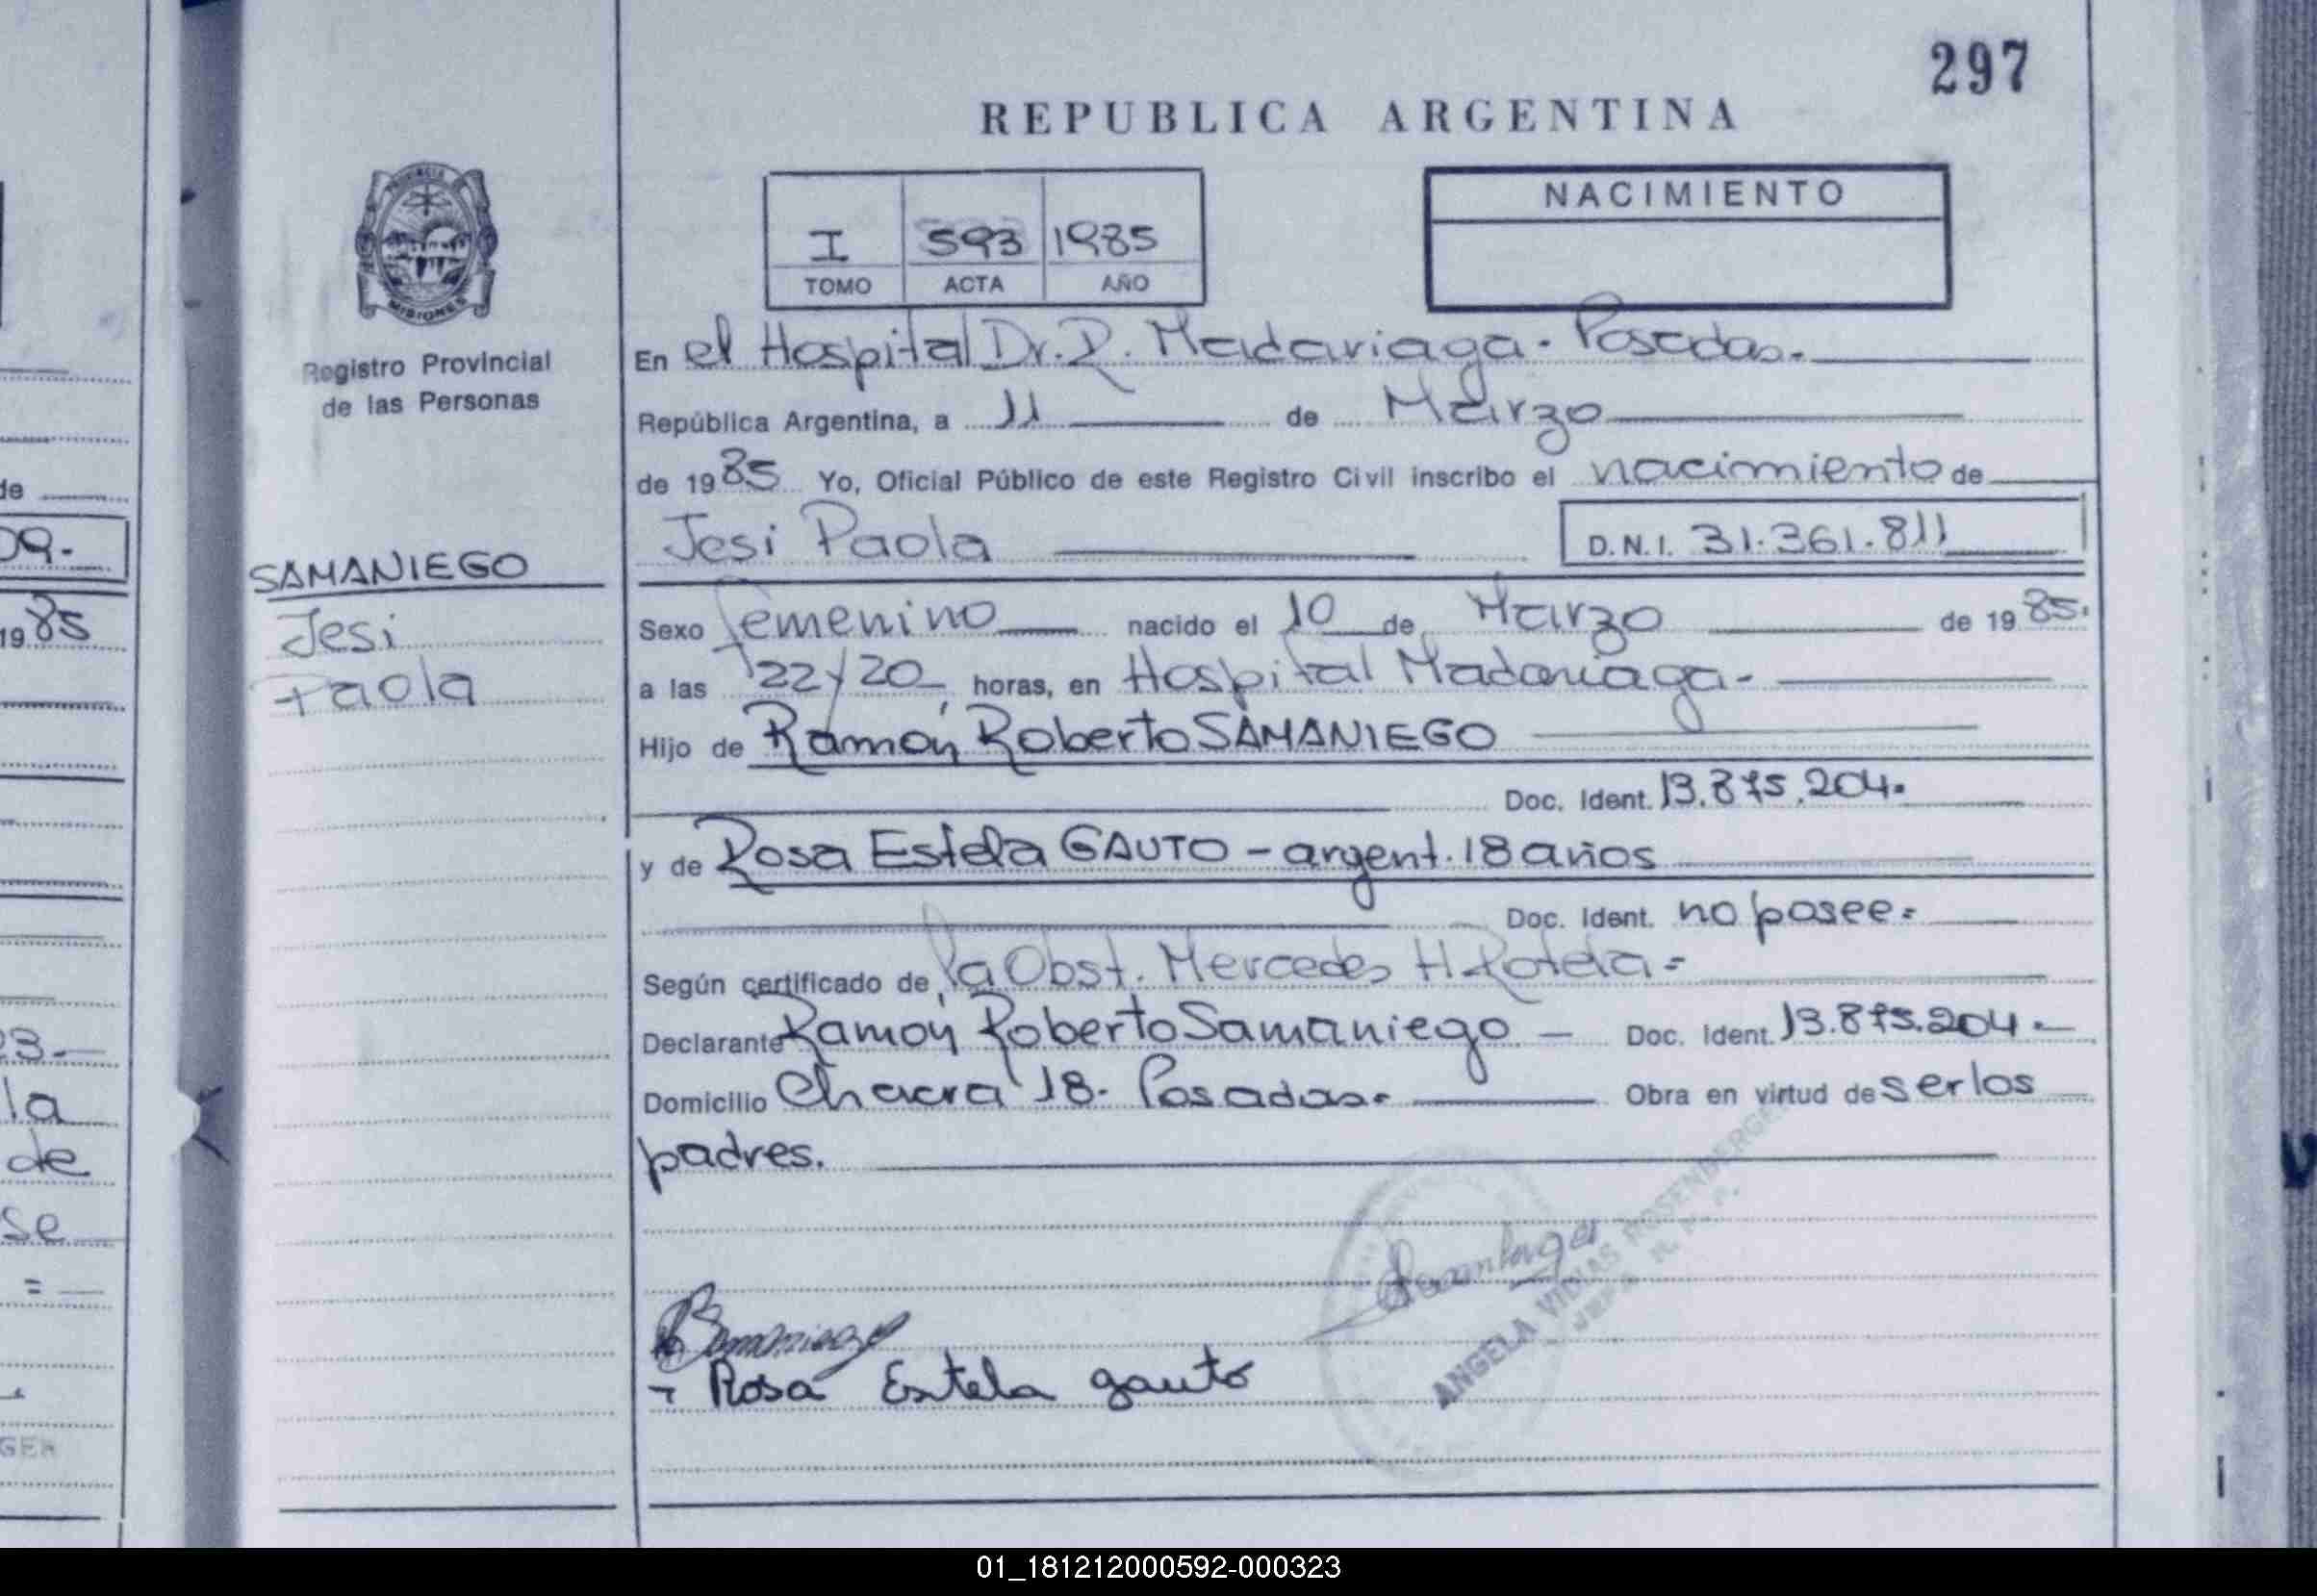 297
REPUBLICA ARGENTINA
PROVINCIA
MISIONES
Registro Provincial
de las Personas
I 593 1985
TOMO ACTA AÑO
NACIMIENTO
En el Hospital Dr. R. Madariaga. Posadas.
República Argentina, a 11 de Marzo
de 1985 Yo, Oficial Público de este Registro Civil inscribo el nacimiento de
Jesi Paola D.N.I. 31.361.811
SAMANIEGO
Jesi
Paola
Sexo femenino nacido el 10 de Marzo de 1985.
a las 22y20 horas, en Hospital Madariaga-
Hijo de Ramón Roberto SAMANIEGO
Doc. Ident. 13.875.204.
y de Rosa Estela GAUTO - argent. 18 años
Doc. Ident. no posee=
Según certificado de la Obst. Mercedes H. Rotela=
Declarante Ramón Roberto Samaniego - Doc. Ident. 13.875.204.-
Domicilio Chacra 18. Posadas. Obra en virtud de ser los
padres.
Rosa Estela gauto
ANGELA VIDIAS ROSENBERGER
09.
1985
23.-
la
de
se
=
GER
01_181212000592-000323